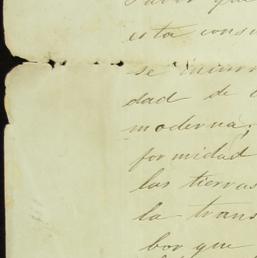 favor que
esta cons
se incorr
dad de l
moderna,
formidad
las tierras
la trans
bor que